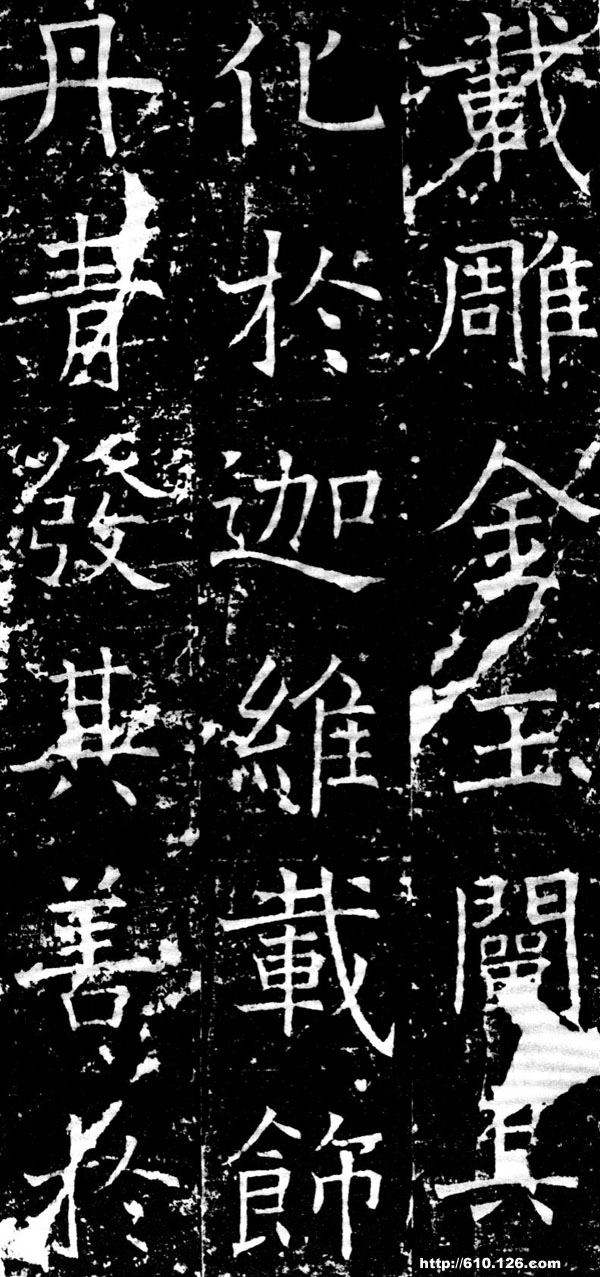 載雕金玉闡其
化於迦維載飾
丹青發其善於
http://610.126.com